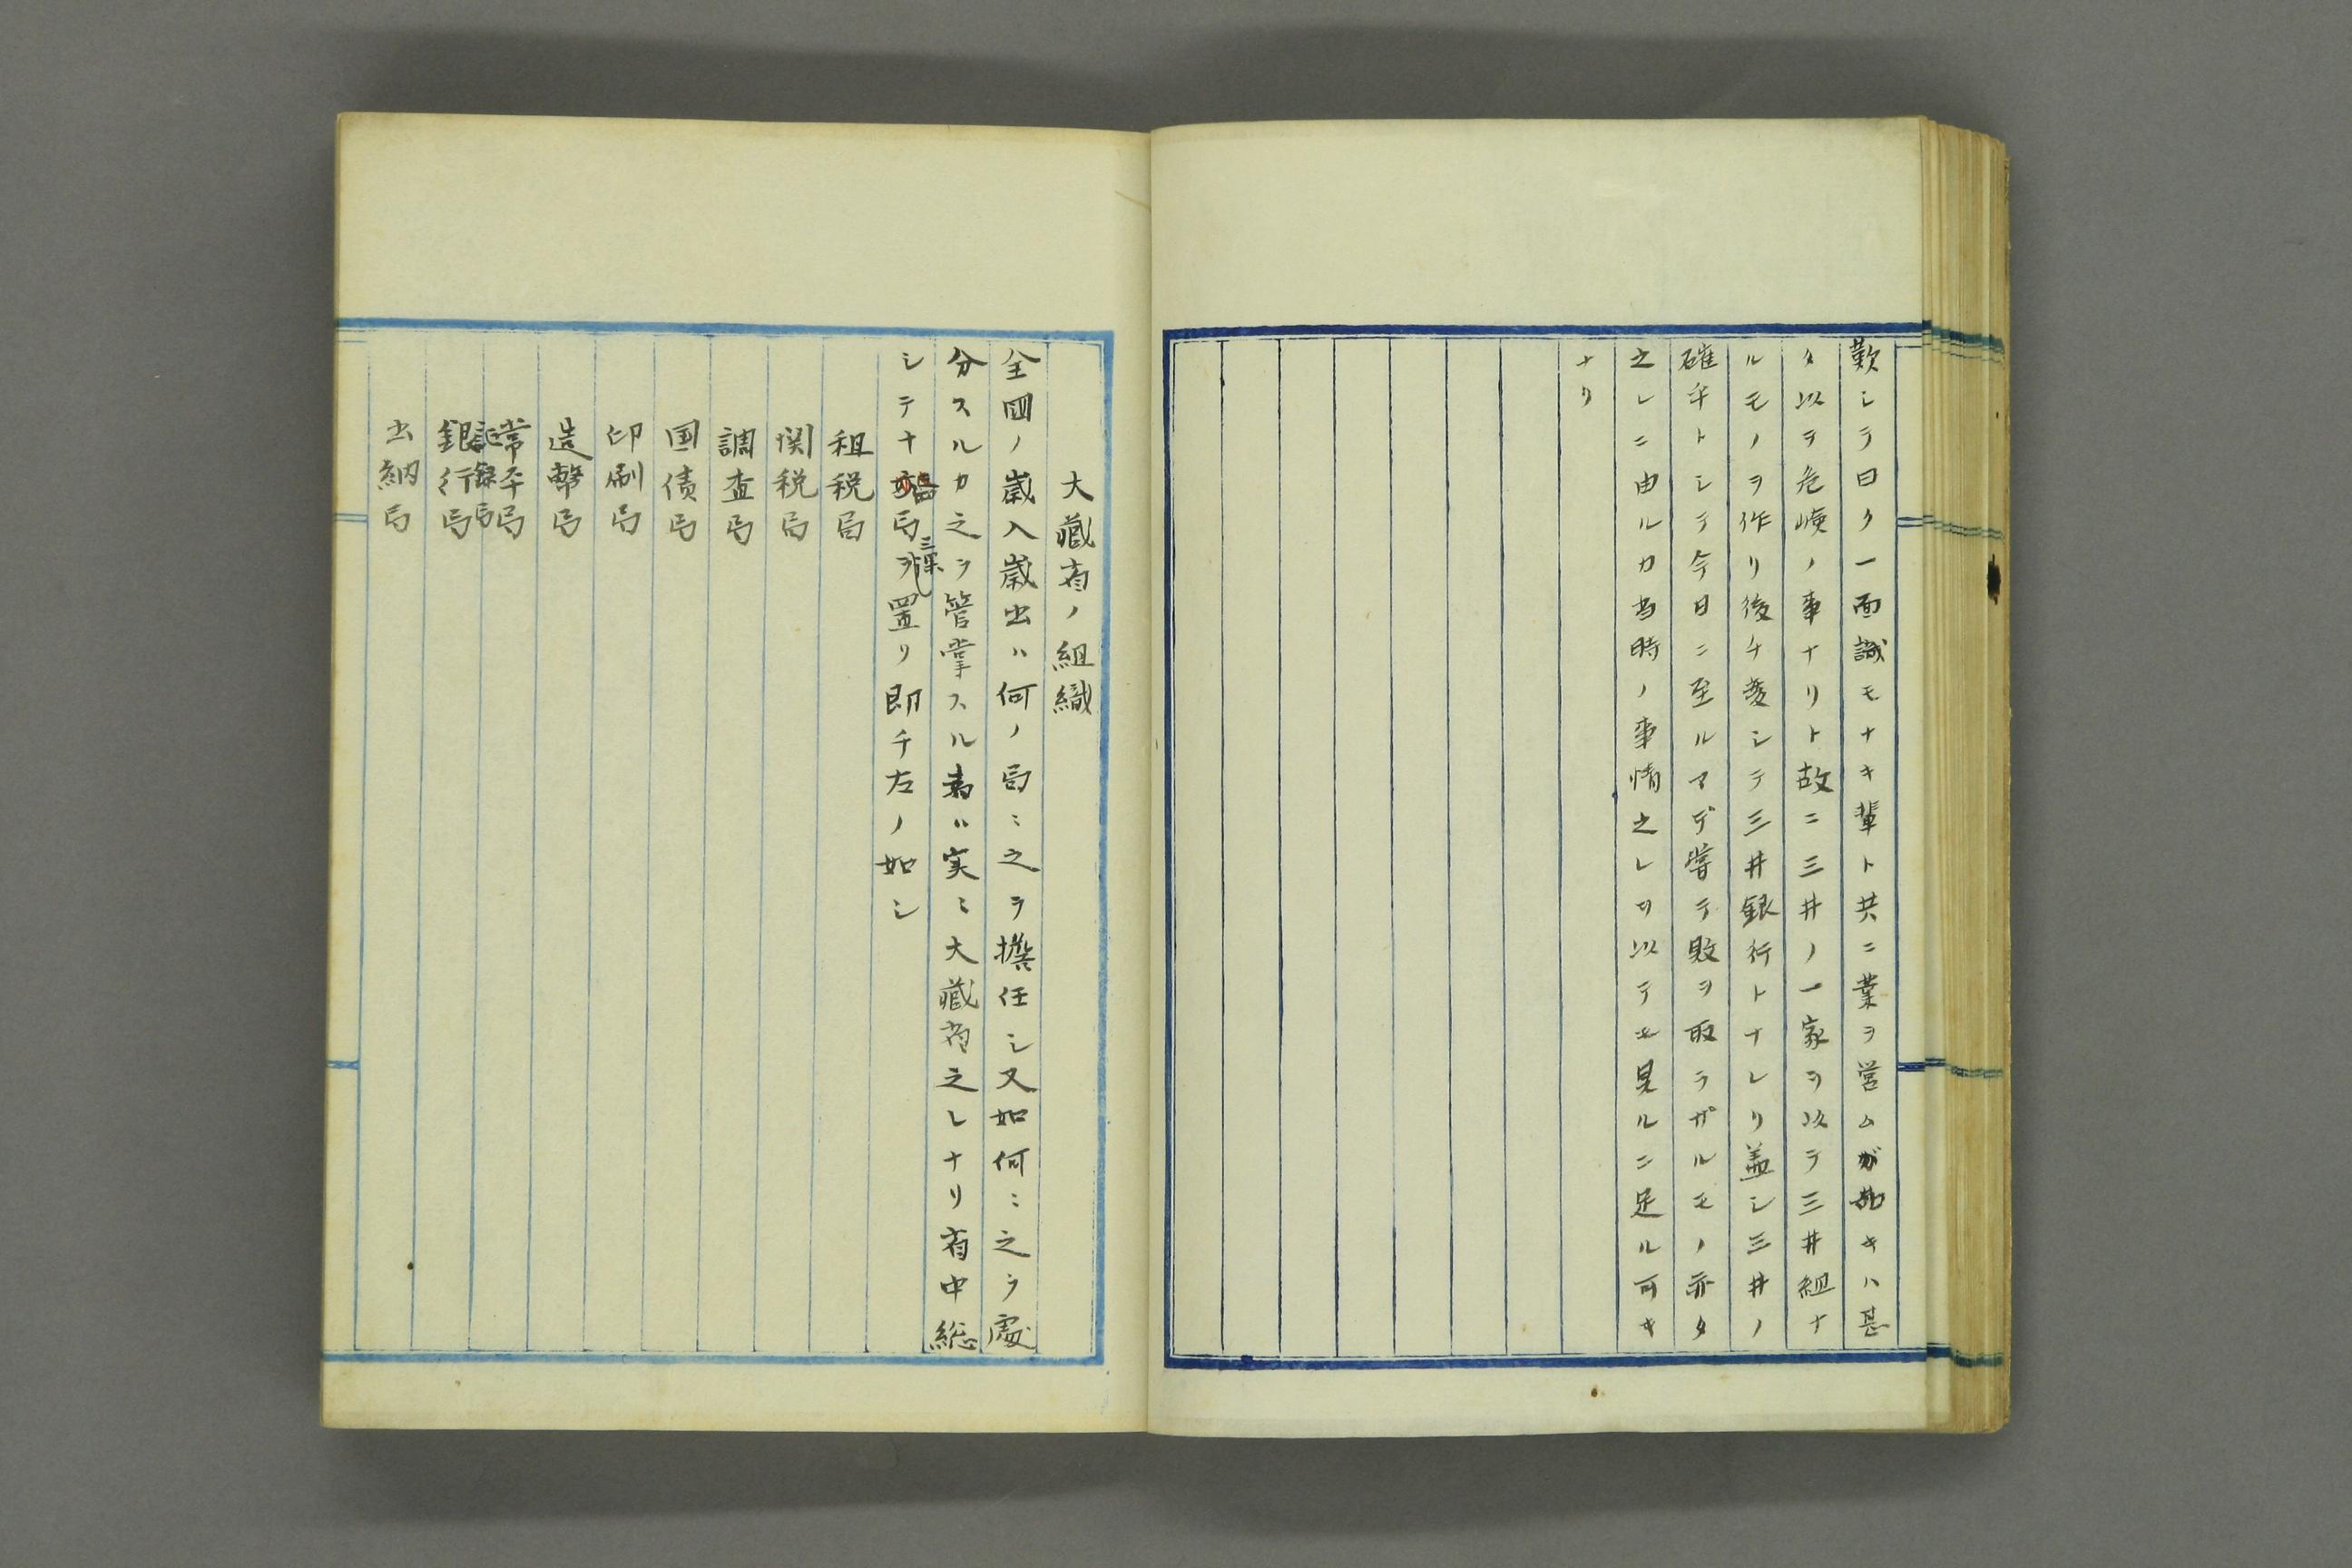 歎シテ曰ク一面識モナキ輩ト共ニ業ヲ営ムガ如キハ甚
タ以テ危嶮ノ事ナリト故ニ三井ノ一家ヲ以テ三井組ナ
ルモノヲ作リ後チ変シテ三井銀行トナレリ盖シ三井ノ
確乎トシテ今日ニ至ルマデ嘗テ敗ヲ取ラザルモノ亦タ
之レニ由ルカ当時ノ事情之レヲ以テモ見ルニ足ル可キ
ナリ
大藏省ノ組織
全國ノ歳入歳出ハ何ノ局ニ之ヲ擔任シ又如何ニ之ヲ處
分スルカ之ヲ管掌スル者ハ実ニ大藏省之レナリ省中総
シテ十局三課ヲ置リ即チ左ノ如シ
租税局
関税局
調査局
国債局
印刷局
造幣局
常平局
記録局
銀行局
出納局